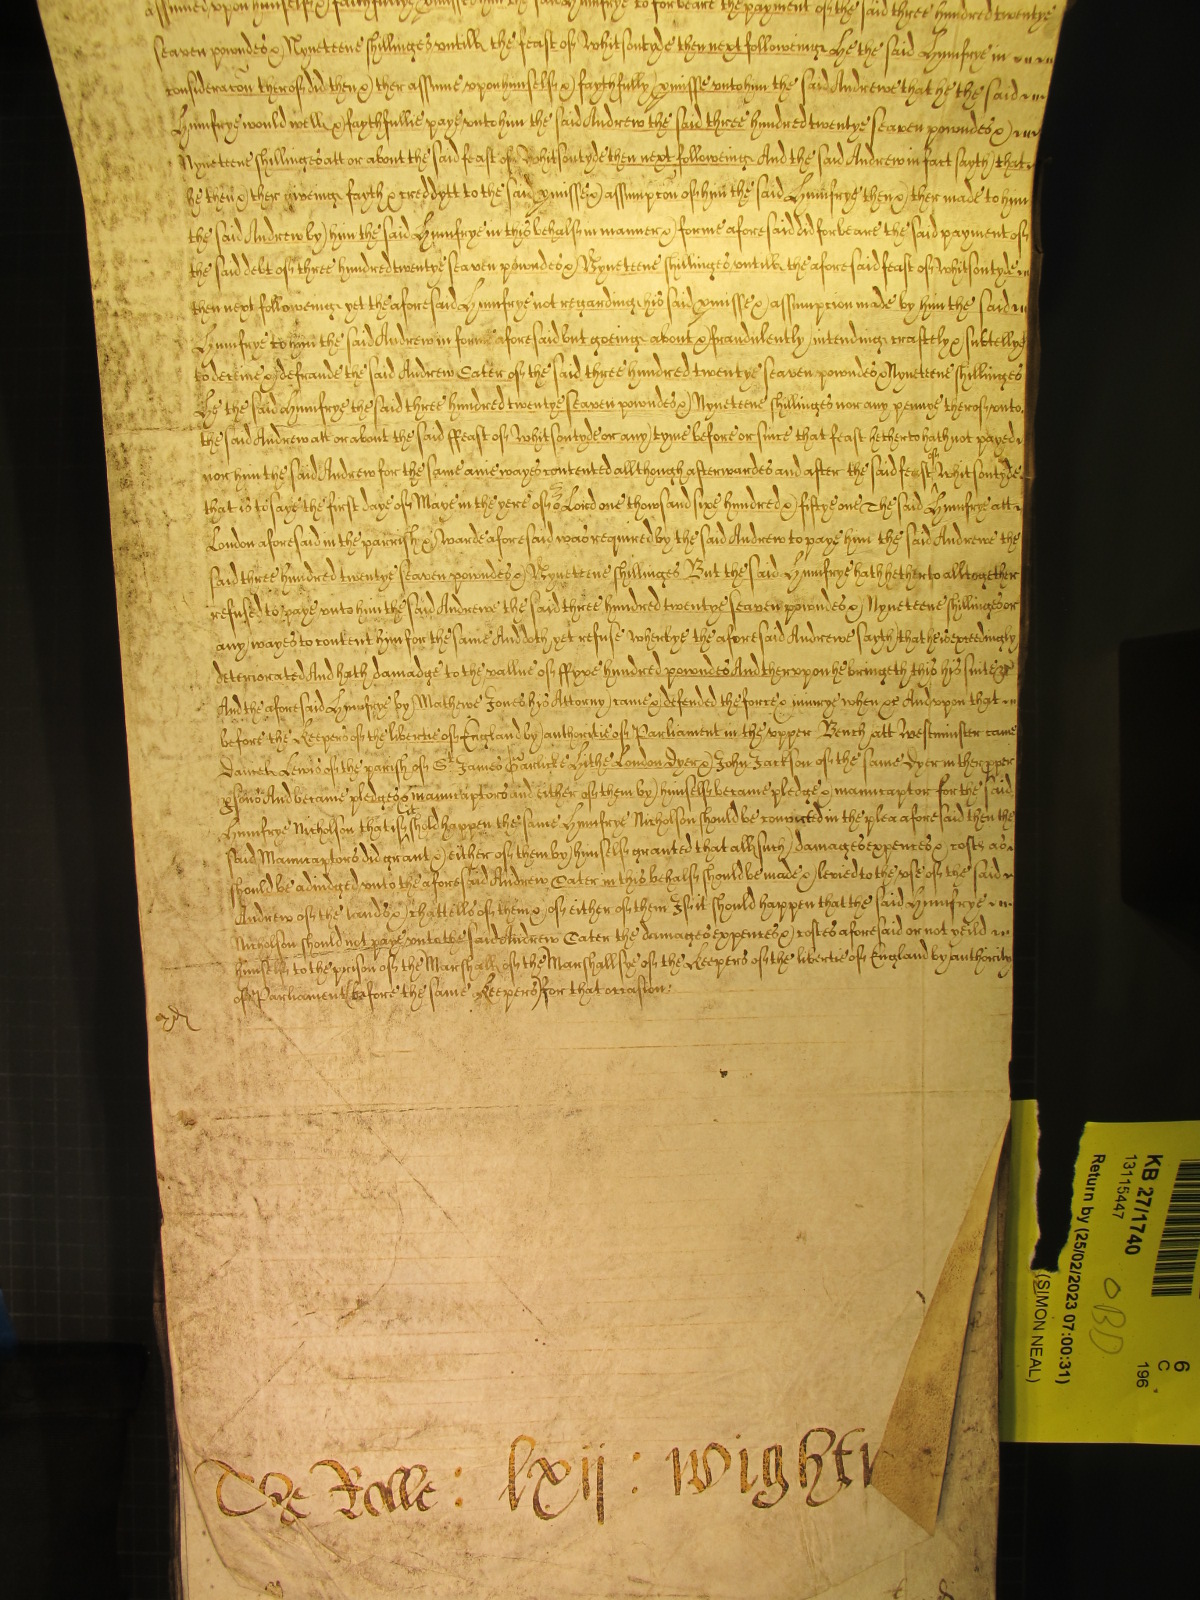 assumed upon himselfe & faithfullye p'missed him the said Humfrye to forbeare the payment of the said three hundred twentye
seaven powndes & Nyneteene shillinges untill the feast of Whitsontyde then next followeinge He the said Humfrye in
consideracon therof did then & ther assume upon himselfe & faythfully p'misse unto him the said Andrewe that he the said
Humfrye would well & faythfullie paye unto him the said Andrew the said three hundred twentye seaven powndes &
Nyneteene shillinges att or about the said feast of Whitsontyde then next followeinge And the said Andrew in fact sayth that
he then & ther giveinge fayth & creddytt to the said p'misse & assumpcon of him the said Humfrye then & ther made to him
the said Andrew by him the said Humfrye in this behalfe in manner & forme aforesaid did forbeare the said payment of
the said debt of three hundred twentye seaven powndes & Nyneteene shillinges untill the aforesaid feast of Whitsontyde
then next followeinge yet the aforesaid Humfrye not regardinge his said p'misse & assumption made by him the said
Humfrye to him the said Andrew in forme aforesaid but goeinge about & fraudulently intendinge craftely & subtellye
to deceive & defraude the said Andrew Cater of the said three hundred twentye seaven powndes & Nyneteene shillinges
He the said Humfrye the said three hundred twentye seaven powndes & Nyneteene shillinges nor any pennye therof unto
the said Andrew att or about the said ffeast of Whitsontyde or any tyme before or since that feast hetherto hath not payed
nor him the said Andrew for the same anie wayes contented allthough afterwardes and after the said feast of Whitsontyde
that is to saye the first daye of Maye in the yere of o'r Lord one thowsand sixe hundred & fiftye one The said Humfrye att
London aforesaid in the parrish & warde aforesaid was required by the said Andrew to paye him the said Andrewe the
said three hundred twentye seaven powndes & Nyneteene shillinges But the said Humfrye hath hetherto alltogether
refused to paye unto him the said Andrewe the said three hundred twentye seaven powndes & Nyneteene shillinges or
any wayes to content him for the same And doth yet refuse Wherbye the aforesaid Andrewe sayth that he is exceedingly
deteriorated And hath damadge to the vallue of ffyve hundred powndes And therupon he bringeth this his suite &c
And the aforesaid Humfrye by Mathewe Jones his Attorny came & defended the force & injurye when &c And upon that
before the Keepers of the libertie of England by authoritie of Parliament in the upper Bench att Westminster came
Daniell Lewis of the parish of St James Garlicke Hithe London Dyer & John Jackson of the same Dyer in ther p'per
p'sons And became pledges & manucaptors and either of them by himselfe became pledge & manucaptor for the said
Humfrye Nicholson that if it shold happen the same Humfrye Nicholson should be convicted in the plea aforesaid then the
said Manucaptors did grant & either of them by himselfe granted that all such damages expences & costs as
should be adiudged unto the aforesaid Andrew Cater in this behalfe should be made & levied to the use of the said
Andrew of the landes & chattells of them & of either of them If it should happen that the said Humfrye
Nicholson should not paye unto the said Andrew Cater the damages expences & costes aforesaid or not yeild
himselfe to the prison of the Marshall of the Marshallsye of the Keepers of the libertie of England by authority
of Parliament before the same Keepers for that occasion
The Rolle : lxij : wight
KB 27/1740
13115447
Return by (25/02/2023 07:00:31)
(SIMON NEAL)
OBD
6
C
196